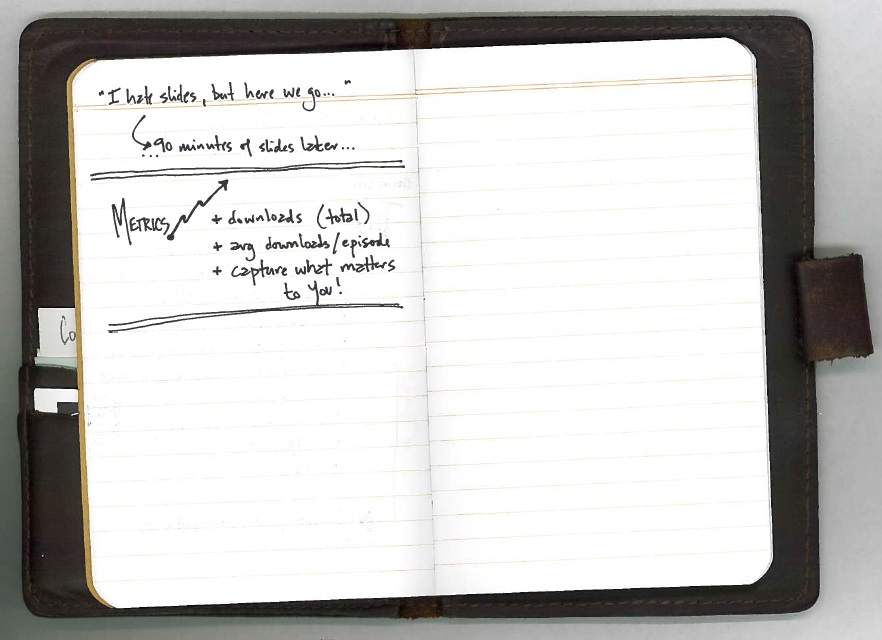 "I hate slides, but here we go..."
...90 minutes of slides later...
METRICS
+ downloads (total)
+ avg downloads/episode
+ capture what matters
to You!
Co